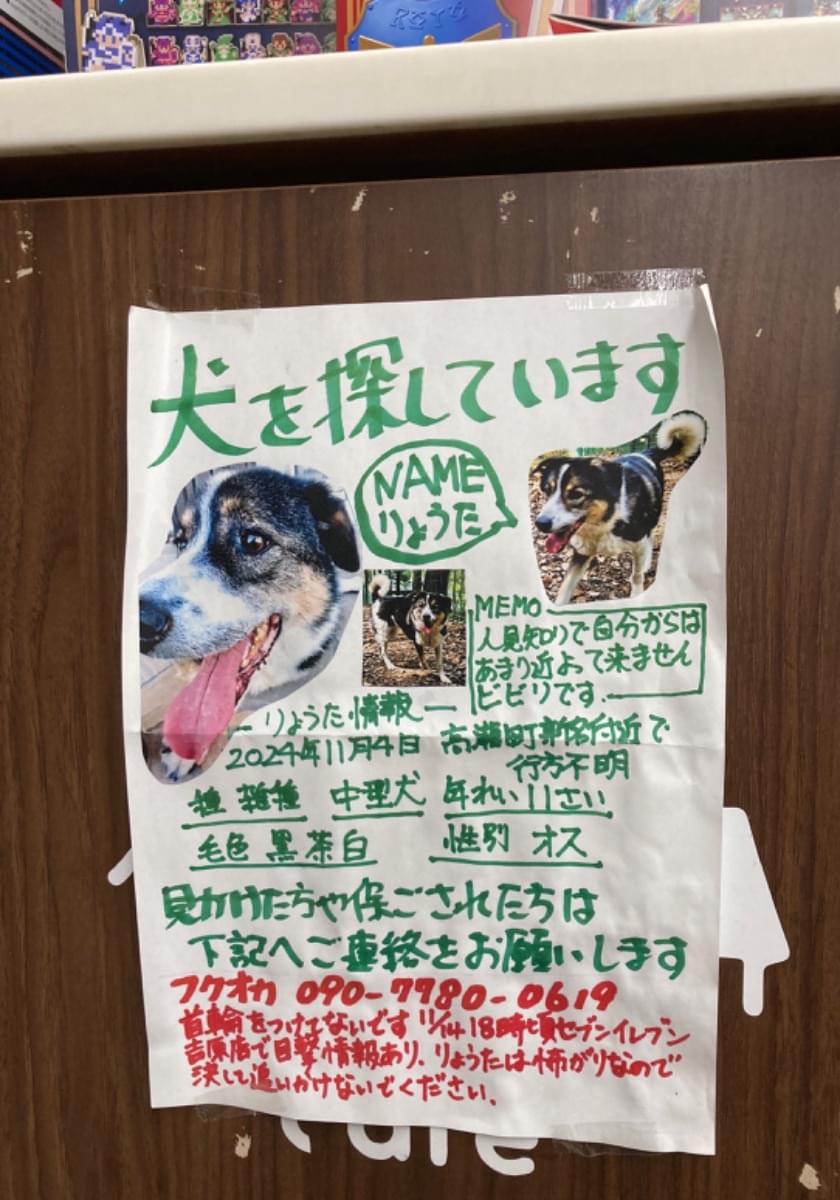 犬を探しています
NAME
りょうた
MEMO
人見知りで自分からは
あまり近よって来ません
ビビリです.
ー りょうた情報 ー
2024年11月4日 高瀬町新名付近で
行方不明
種 雑種 中型犬 年れい11さい
毛色 黒茶白 性別 オス
見かけた方や保ごされた方は
下記へご連絡をお願いします
フクオカ 090-7780-0619
首輪をつけてないです 11/14 18時頃セブンイレブン
吉原店で目撃情報あり. りょうたは怖がりなので
決して追いかけないでください.